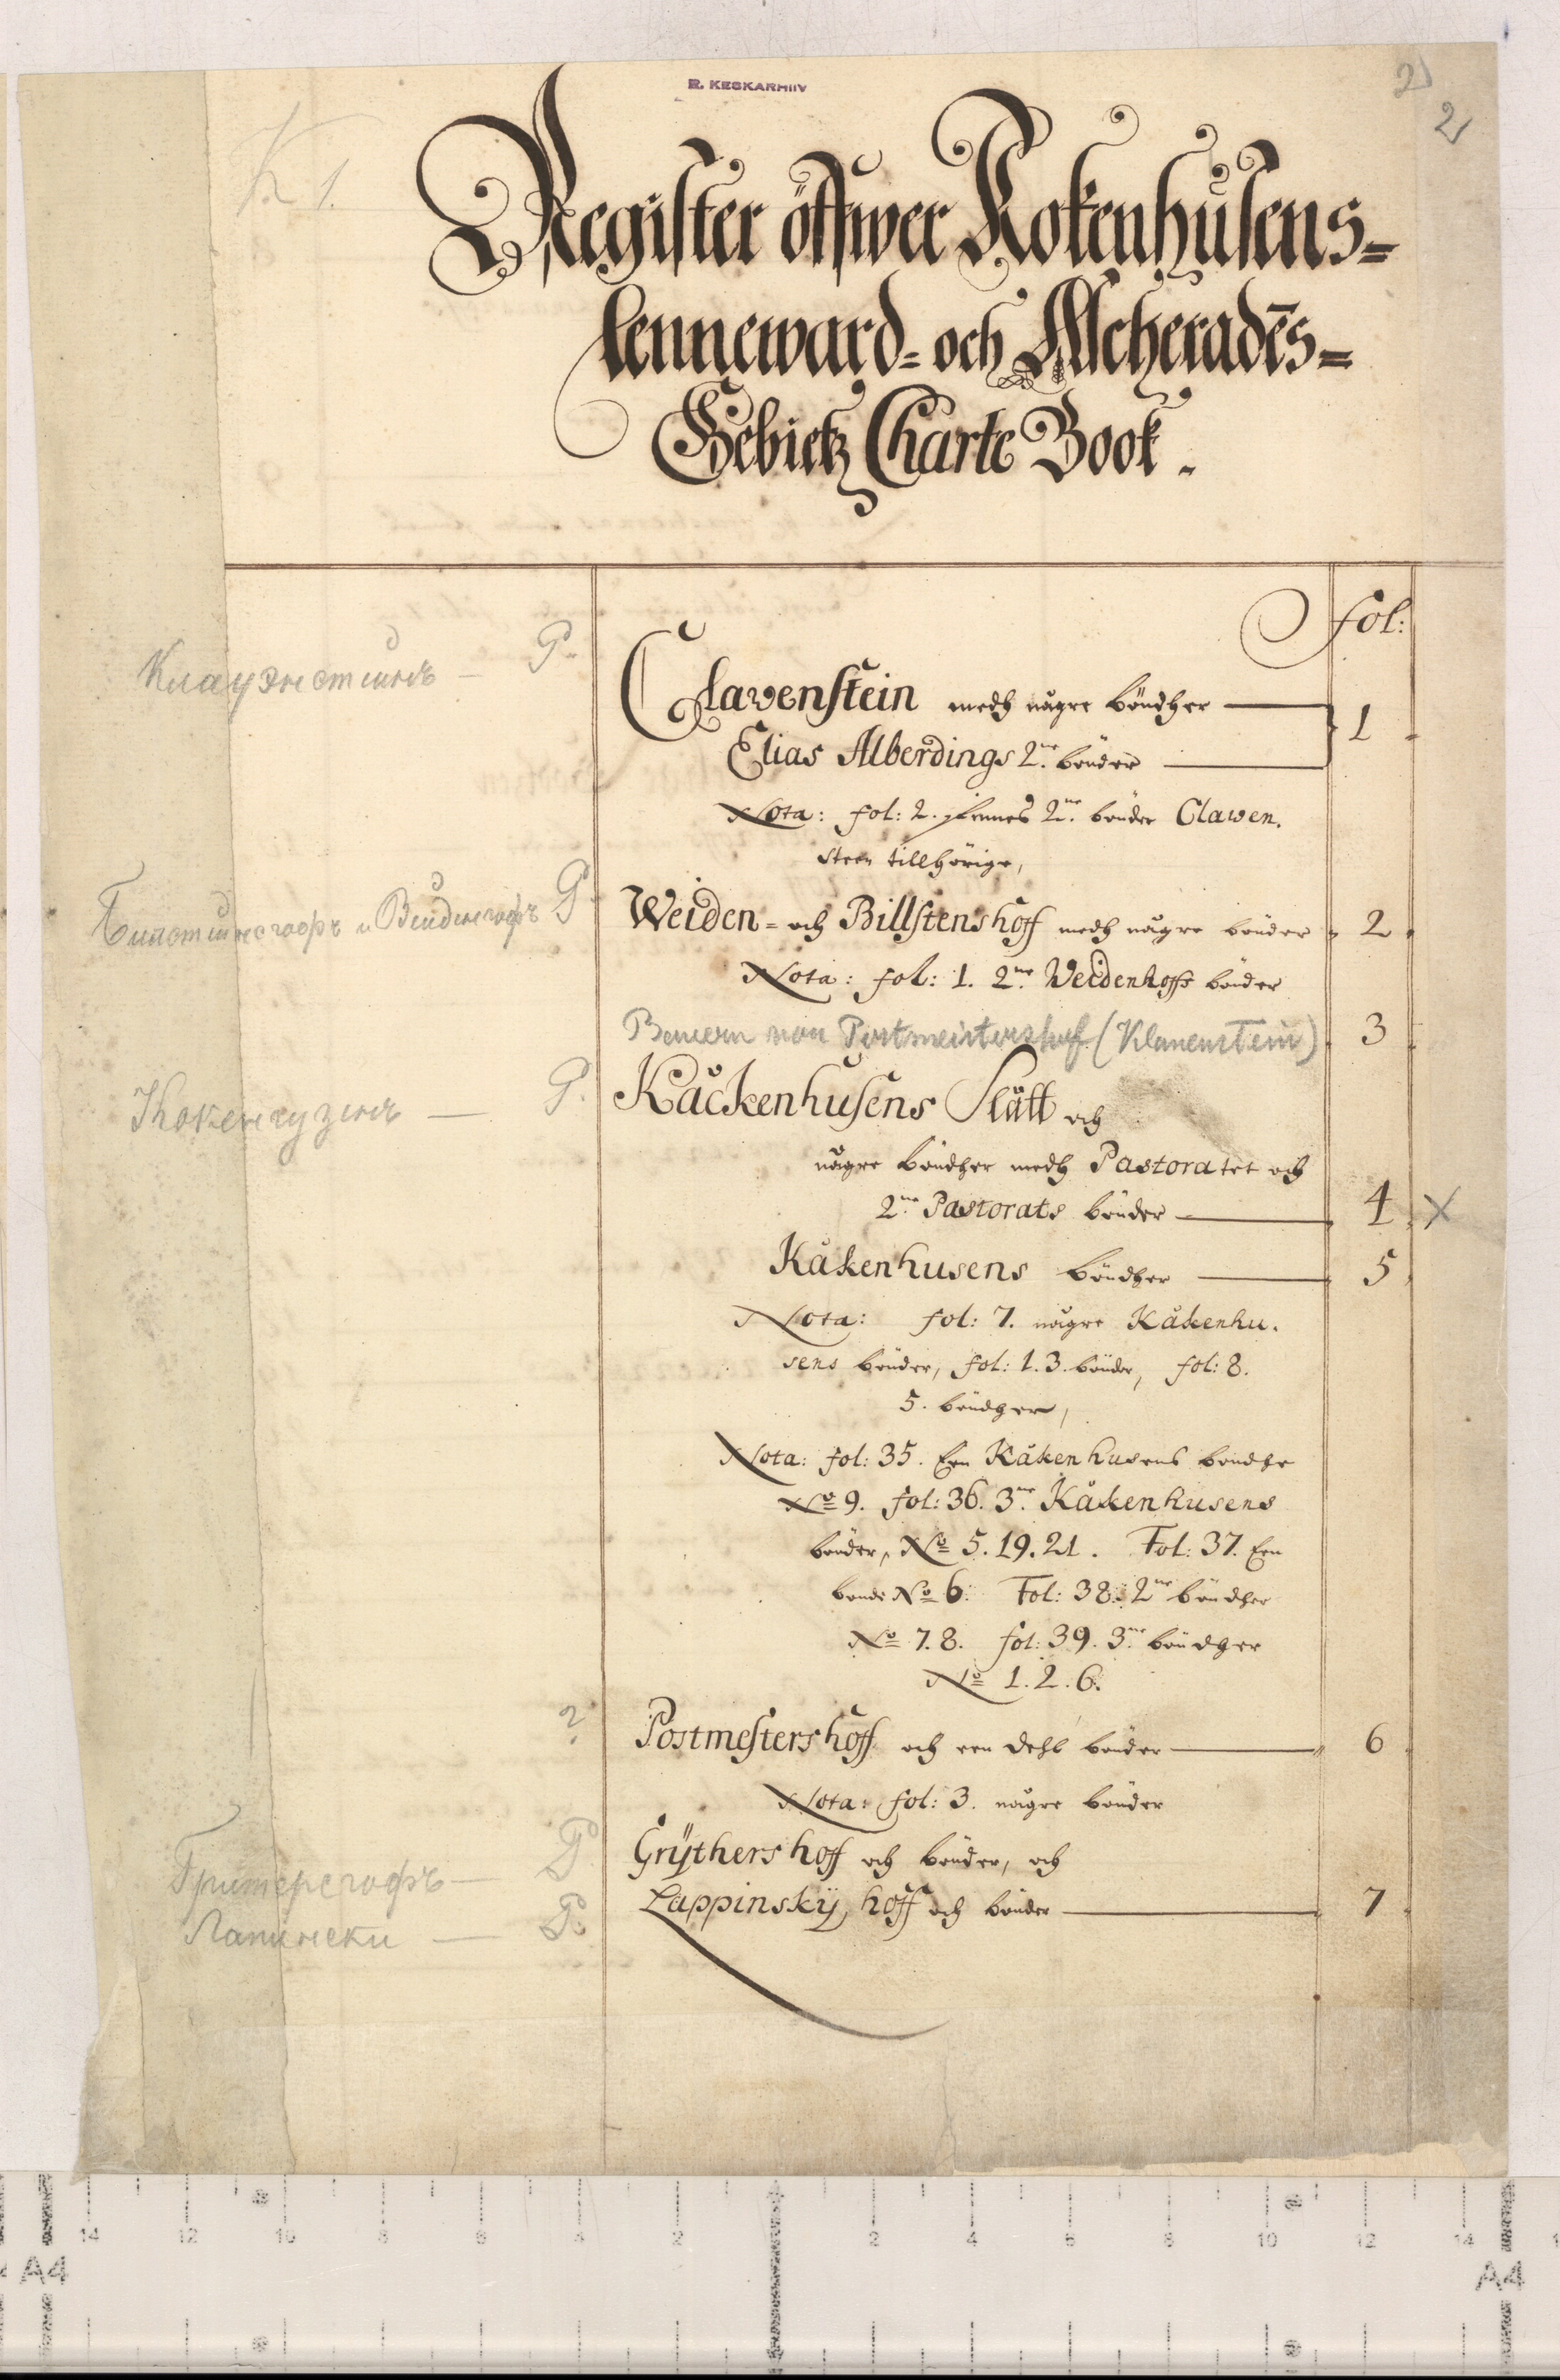 R. KESKARHIIV
2
2
K 1.
Register öffwer Kokenhusens=
Lenneward= och Ascheradens=
Gebietz Charte Book.
fol:
Клауэнстейнъ — P.
Clavenstein medh någre böndher — 1
Elias Alberdings 2ne bönder
Nota: fol: 2. finnes 2ne bönder Clawen.
steen tillhörige,
Билстейнсгофъ и Вейденгофъ P
Weiden= och Billstenshoff medh någre bönder 2
Nota: fol: 1. 2ne Weidenhoffs bönder
Bauern von Postmeistershof (Klauenstein) 3
Кокенгузенъ — P.
Kåckenhusens Slått och
någre böndher medh Pastoratet och
2ne Pastorats bönder — 4 X
Kåkenhusens böndher — 5
Nota: fol: 7. någre Kåkenhu.
sens bönder, fol: 1. 3. bönder, fol: 8.
5. böndher,
Nota: fol: 35. Een Kåkenhusens bondhe
No 9. fol: 36. 3ne Kåkenhusens
bönder, No 5. 19. 21. Fol: 37. Een
bonde No 6. Fol: 38. 2ne böndher
No 7. 8. fol: 39. 3ne böndher
No 1. 2. 6.
?
Postmestershoff och een dehl bönder — 6
Nota: fol: 3. någre bönder
Гритерсгофъ — P
Grÿthershoff och bönder, och
Лапински — P.
Lappinskÿ hoff och bönder — 7
14 12 10 8 6 4 2 2 4 6 8 10 12 14
A4 A4